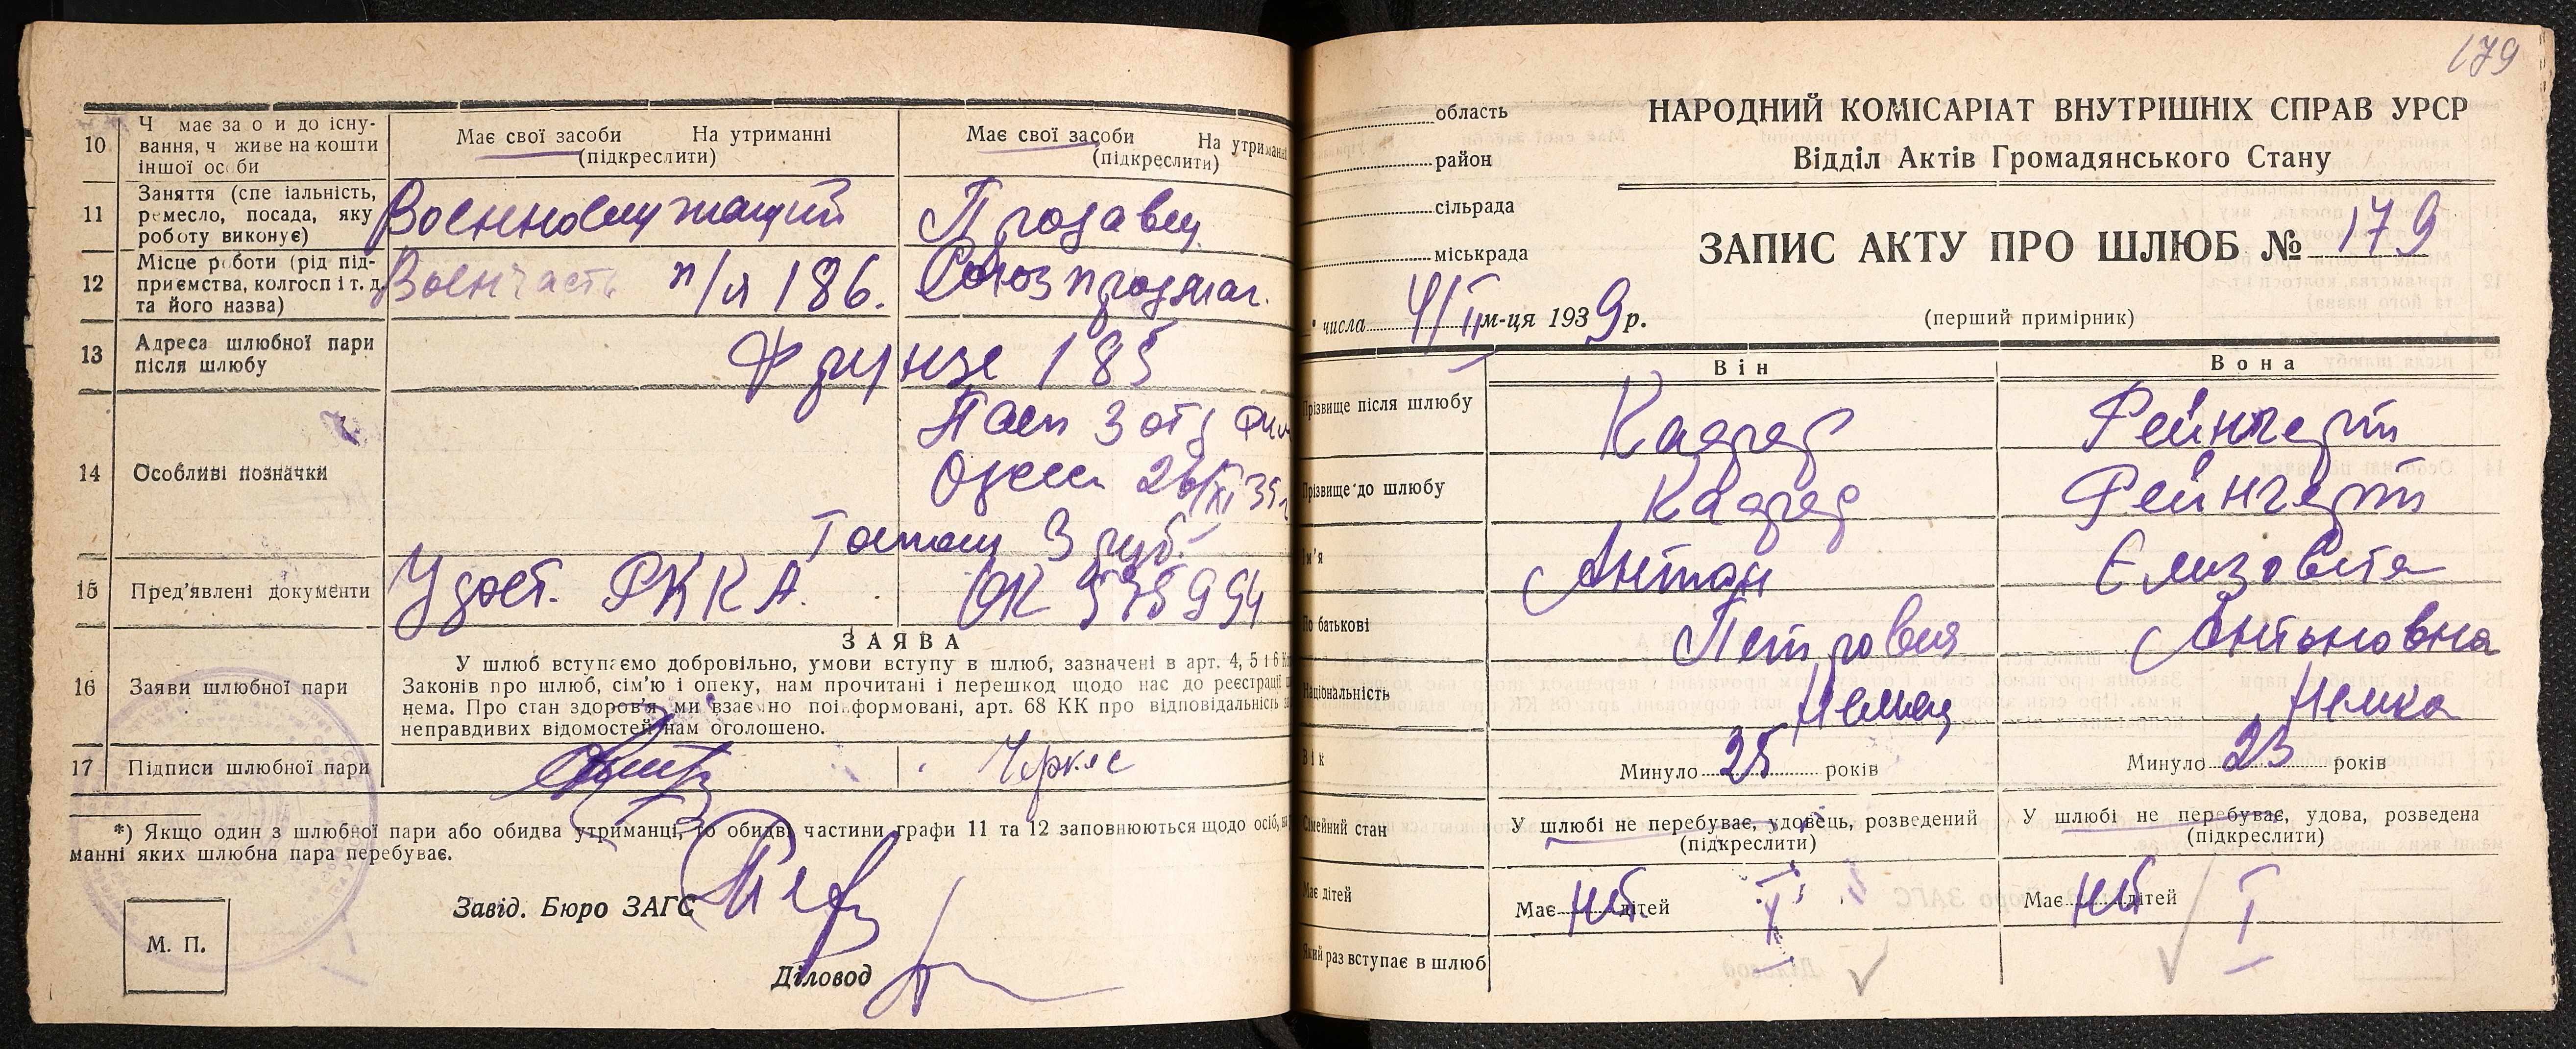 10
Ч має за о и до існу-
вання, ч живе на кошти
іншої особи
Має свої засоби На утриманні
(підкреслити)
Має свої засоби На утриманні
(підкреслити)
11
Заняття (спе іальність,
ремесло, посада, яку
роботу виконує)
Военнослужащий
Продавец
12
Місце роботи (рід під-
приємства, колгосп і т. д.
та його назва)
Воен часть п/я 186.
Союзпродмаг.
13
Адреса шлюбної пари
після шлюбу
Фрунзе 185
14
Особливі позначки
Пасп 3 отд
Одесси 26/XI 35 г
Госпош 3 руб.
15
Пред'явлені документи
Удост. РККА.
ОК
ЗАЯВА
16
Заяви шлюбної пари
У шлюб вступаємо добровільно, умови вступу в шлюб, зазначені в арт. 4, 5 і 6
Законів про шлюб, сім'ю і опеку, нам прочитані і перешкод щодо нас до реєстрації
нема. Про стан здоров'я ми взаємно поінформовані, арт. 68 КК про відповідальність за
неправдивих відомостей нам оголошено.
17
Підписи шлюбної пари
*) Якщо один з шлюбної пари або обидва утриманці, то обидві частини графи 11 та 12 заповнюються щодо осіб, на
манні яких шлюбна пара перебуває.
Завід. Бюро ЗАГС
М. П.
Діловод
179
область
район
сільрада
міськрада
НАРОДНИЙ КОМІСАРІАТ ВНУТРІШНІХ СПРАВ УРСР
Відділ Актів Громадянського Стану
ЗАПИС АКТУ ПРО ШЛЮБ № 179
числа 4/II м-ця 1939 р.
(перший примірник)
Він
Вона
Прізвище після шлюбу
Рейнгерт
Прізвище до шлюбу
Рейнгерт
Ім'я
Антон
Єлизовета
По батькові
Петрович
Антоновна
Національність
Немец
Немка
Вік
Минуло 25 років
Минуло 23 років
Сімейний стан
У шлюбі не перебуває, удовець, розведений
(підкреслити)
У шлюбі не перебуває, удова, розведена
(підкреслити)
Має дітей
Має нет дітей
Має нет дітей
Який раз вступає в шлюб
I
I